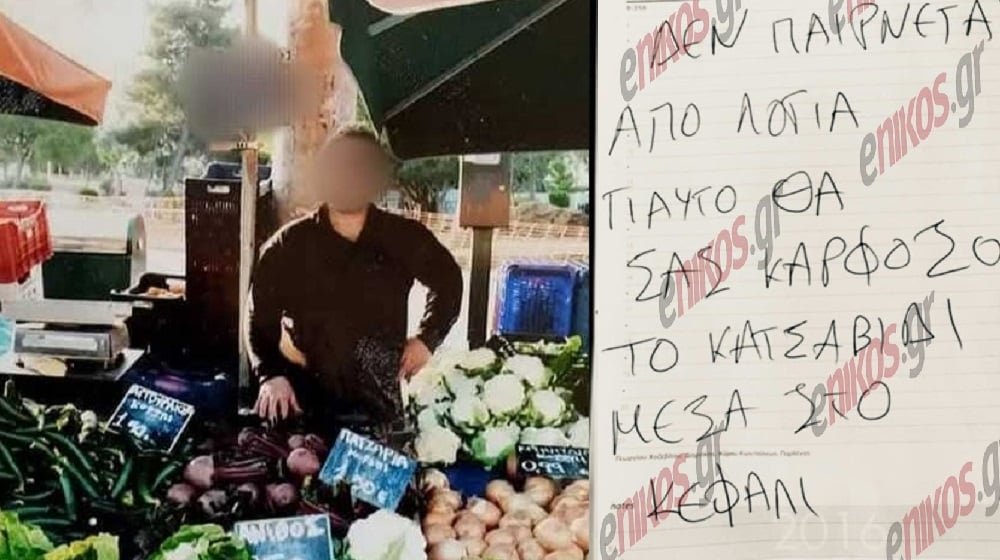 ΑΓΓΟΥΡΑΚΙ
ΠΑΤΖΑΡΙΑ
ΑΝΙΘΟΣ
0,99
ΔΕΝ ΠΑΙΡΝΕΤΑ
ΑΠΟ ΛΟΓΙΑ
ΓΙΑΥΤΟ ΘΑ
ΣΑΣ ΚΑΡΦΟΣΟ
ΤΟ ΚΑΤΣΑΒΙΔΙ
ΜΕΣΑ ΣΤΟ
ΚΕΦΑΛΙ
notes
2016
enikos.gr
enikos.gr
enikos.gr
enikos.gr
enikos.gr
enikos.gr